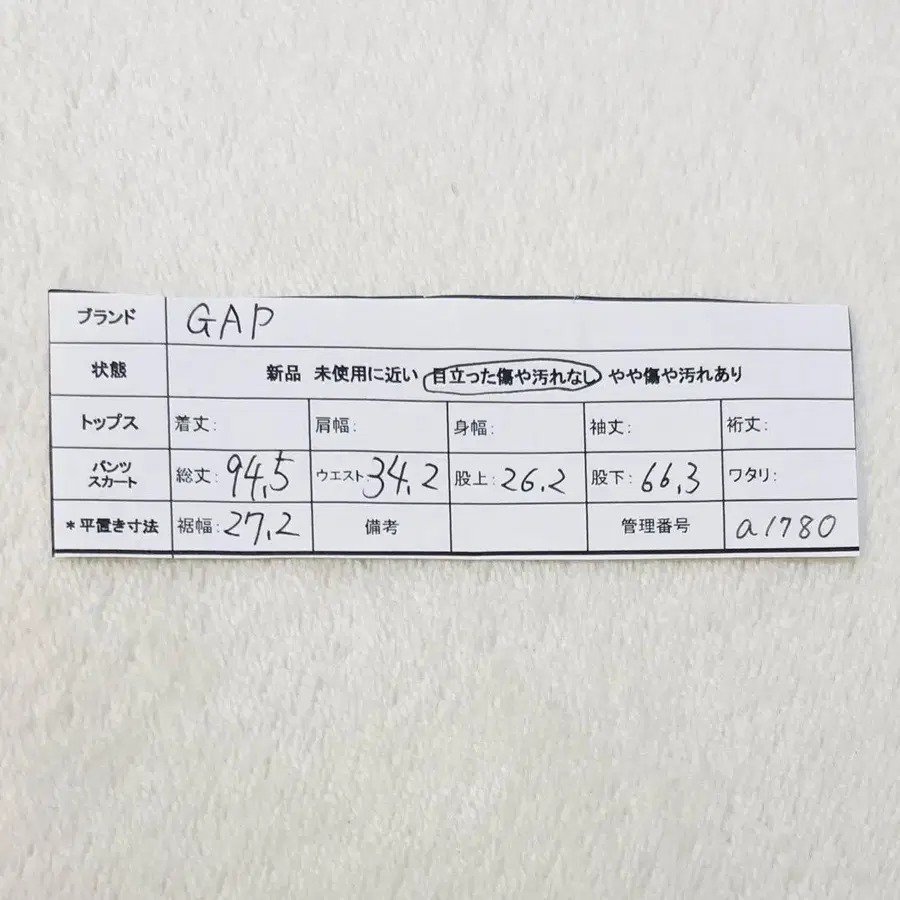 ブランド GAP
状態 新品 未使用に近い 目立った傷や汚れなし やや傷や汚れあり
トップス 着丈: 肩幅: 身幅: 袖丈: 裄丈:
パンツ
スカート 総丈: 94,5 ウエスト 34,2 股上: 26,2 股下: 66,3 ワタリ:
*平置き寸法 裾幅: 27,2 備考 管理番号 a1780